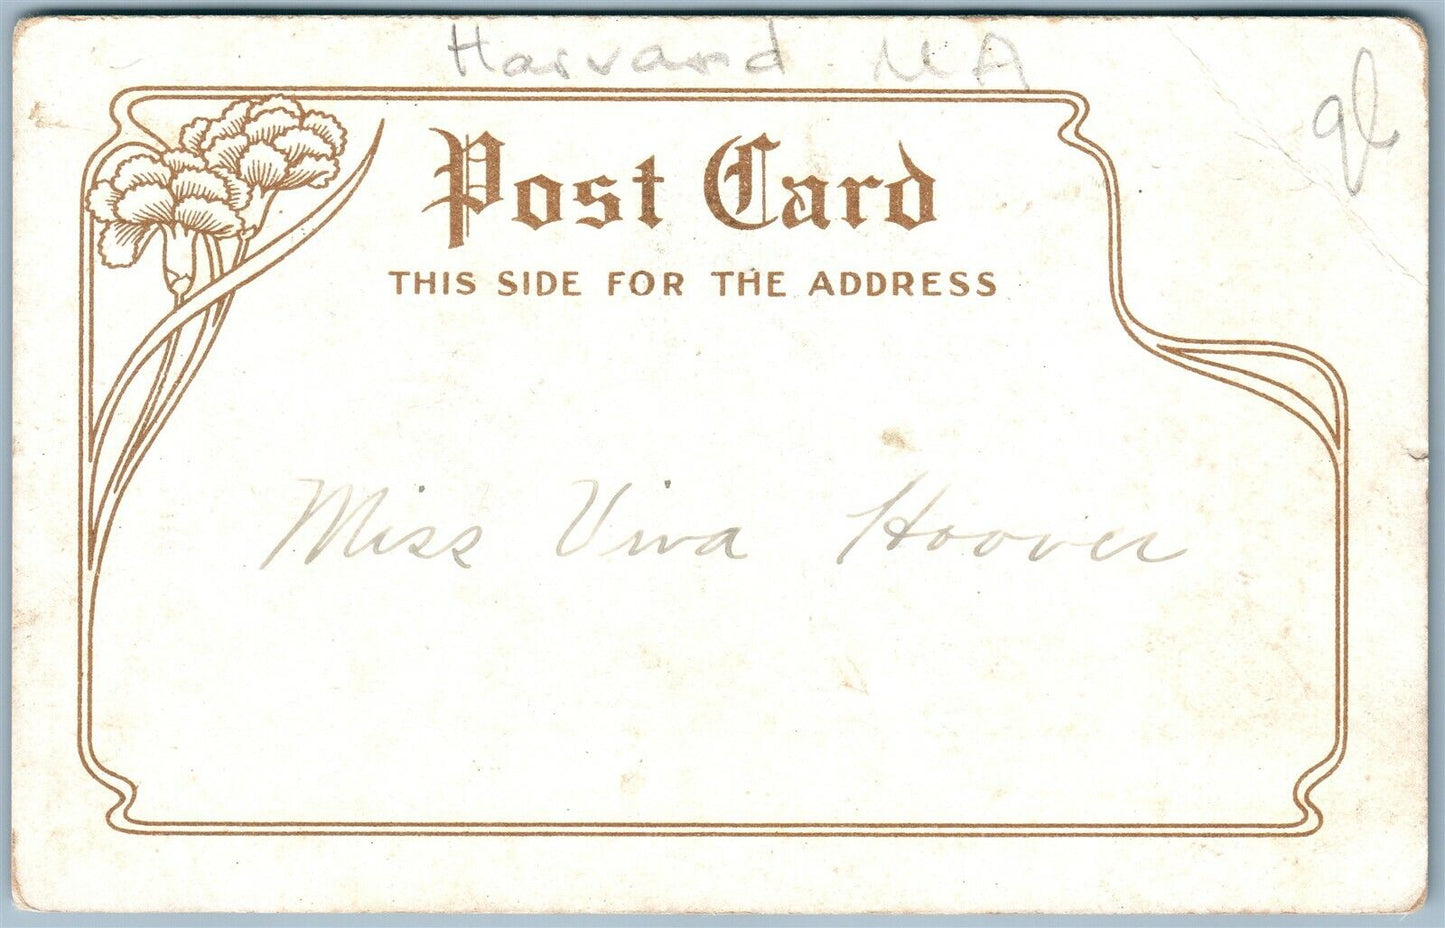 Harvard MA
Post Card
THIS SIDE FOR THE ADDRESS
Miss Viva Hoover